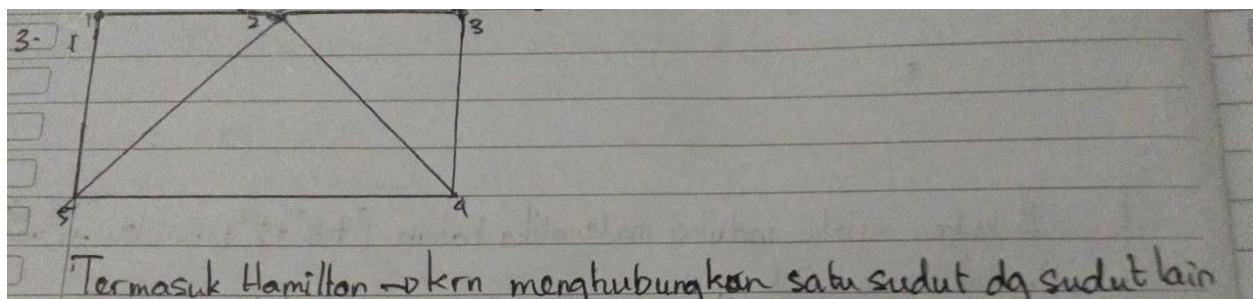 1 2 3
3. I
5 4
Termasuk Hamilton → krn menghubungkan satu sudut dg sudut lain